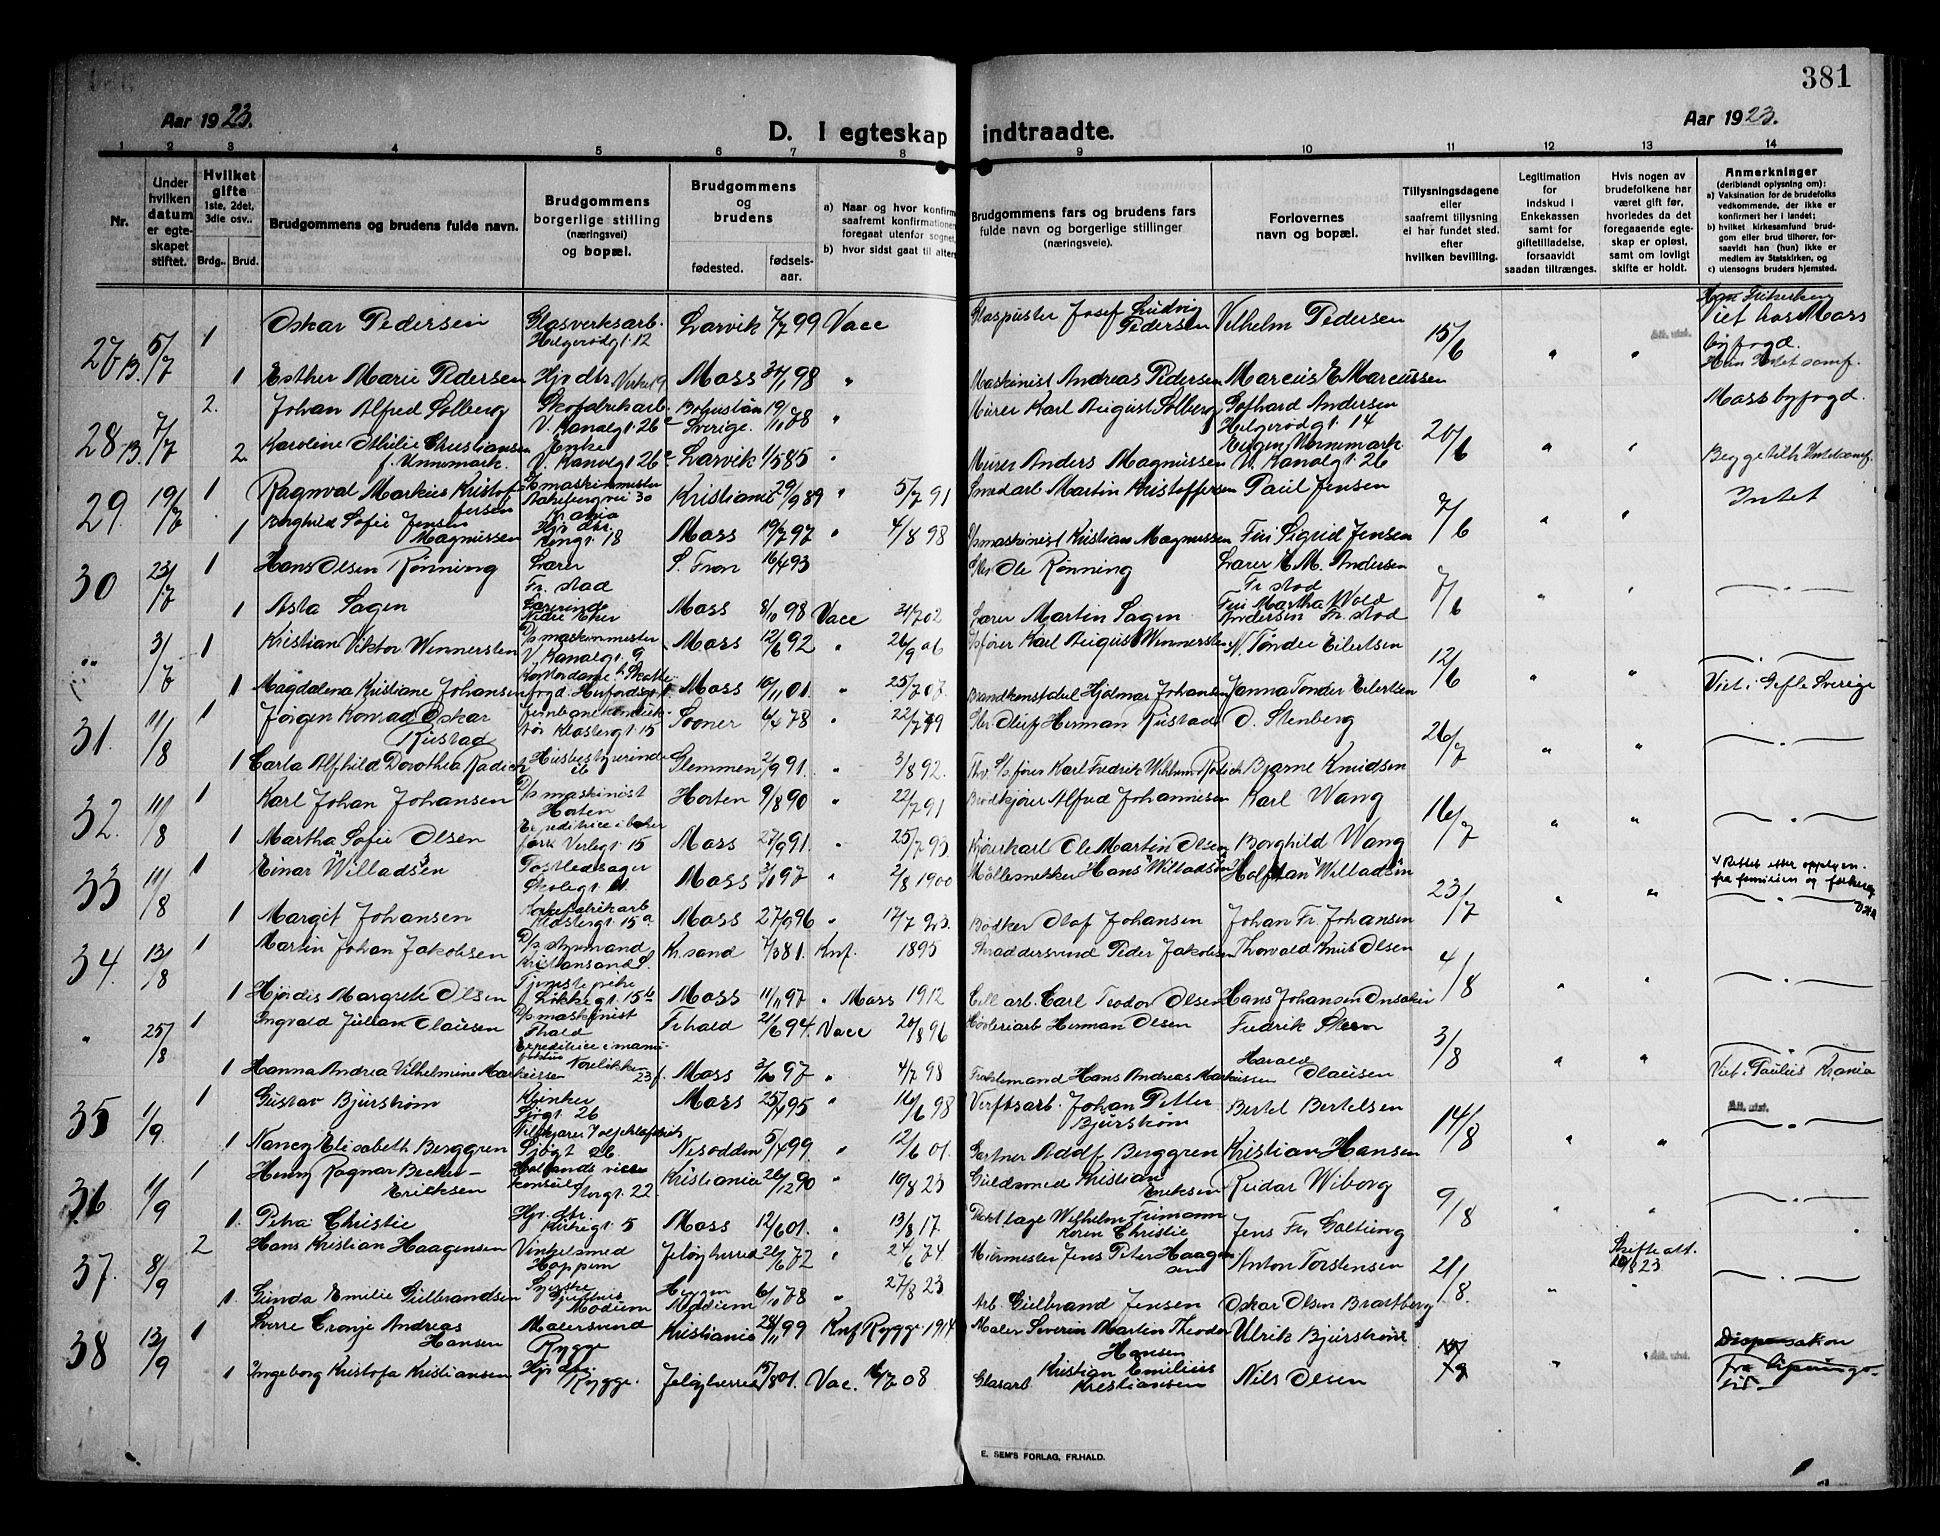 381
Aar 1923.
Aar 1923.
D. I egteskap indtraadte.
1 2 3 4 5 6 7 8 9 10 11 12 13 14
Nr.
Under hvilken datum er egteskapet stiftet.
Hvilket gifte 1ste, 2det, 3die osv..
Brdg.. Brud.
Brudgommens og brudens fulde navn.
Brudgommens borgerlige stilling (næringsvei) og bopæl.
Brudgommens og brudens
fødested. fødsels-aar.
a) Naar og hvor konfirm
saafremt konfirmationen
foregaat utenfor sognet,
b) hvor sidst gaat til alters
Brudgommens fars og brudens fars
fulde navn og borgerlige stillinger
(næringsveie).
Forlovernes
navn og bopæl.
Tillysningsdagene
eller
saafremt tillysning
ei har fundet sted.
efter
hvilken bevilling.
Legitimation
for
indskud i
Enkekassen
samt for
giftetilladelse,
forsaavidt
saadan tiltrænges.
Hvis nogen av
brudefolkene har
været gift før,
hvorledes da det
foregaaende egte-
skap er opløst,
samt om lovligt
skifte er holdt.
Anmerkninger
(deriblandt oplysning om):
a) Vaksination for de brudefolks
vedkommende, der ikke er
konfirmert her i landet;
b) hvilket kirkesamfund brud-
gom eller brud tilhører, for-
saavidt han (hun) ikke er
medlem av Statskirken, og
c) utensogns bruders hjemsted.
27 B. 5/7 1 Oskar Pedersen Glasverksarb. Helgerødgt. 12 Larvik 7/7 99 Vacc Glaspuster Josef Ludvig Pedersen Vilhelm Pedersen 15/6 Viet hos Moss byfogd.
1 Esther Marie Pedersen Hj. dtr. Moss 98 " Maskinist Andreas Pedersen Marcus E Marcussen
28 B. 7/7 2. Johan Alfred Solberg Skofabrikarb. V. Kanalgt. 26 Bohuslän Sverige. 19/11 78 " Murer Karl August Solberg Gothard Andersen Helgerødgt. 14 20/6 Moss byfogd.
2. Karoline Othilie Christiansen f. Unnemark. Enke V. Kanalgt. 26 Larvik 1/5 85 " Murer Anders Magnussen V. Kanalgt. 26
29. 19/7 1 Ragnval Markus Kristoffersen D/s maskinmester 30 Kristiania 29/9 89 " 5/7 91 Smedarb. Martin Kristoffersen Paul Jensen 7/6 Intet
1 Borghild Sofie Jensen Magnussen Hj. dtr. Kongt. 18 Moss 19/7 97 " 4/8 98 D/s maskinist Kristian Magnussen Fru Sigrid Jensen
30 23/7 1 Hans Olsen Rønning Lærer Fr. stad S. Fron 16/4 93 Ole Rønning Lærer E. M. Andersen Fr. stad 7/6
1 Asta Sagen Lærerinde Nedre Eker Moss 8/10 98 Vacc 02 Lærer Martin Sagen Fru Martha Wold Andersen Fr. stad
" 31/7 1 Kristian Viktor Wennersten D/s maskinmester V. Kanalgt. 9 Moss 12/6 92 " 26/9 06 Karl August Wennersten N. Tønder Eilertsen 12/6 Viet i Gefle Sverige
1 Magdalena Kristiane Johansen Moss 10/11 01. " 25/7 07. Brandkonstabel Hjalmar Johansen Janna Tønder Eilertsen
31. 11/8 1 Jørgen Konrad Oskar Rustad Klostergt. 15 Sooner 4/4 78 " 22/7 79 Oluf Herman Rustad O. Stenberg 26/7
1 Carla Alfhild Dorothea Radich Husbestyrerinde Glemmen 2/9 91. " 3/8 92. Karl Fredrik Wilhelm Radich Bjarne Knudsen
32. 11/8 1 Karl Johan Johansen D/s maskinist Horten Horten 9/8 90 " 22/7 91 Brødkjører Alfred Johannesen Karl Wang 16/7
1 Martha Sofie Olsen Verlegt. 15 Moss 27/9 91. " 25/7 93 Kjørekarl Ole Martin Olsen Borghild Wang
33 11/8 1 Einar "Willadsen" Postledsager Skolegt. 11 Moss 3/1 97 " 2/8 1900 Møllesnekker Hans "Willadsen" Halfdan "Willadsen" 23/7 Rettet efter opplysn. fra familien og
1 Margit Johansen Klostergt. 15a Moss 27/9 96 " 17/7 23. Bødker Olaf Johansen Johan Fr. Johansen
34. 13/8 1 Martin Johan Jakobsen D/s styrmand Kristiansand S. Kr. sand 7/3 81. Knf. 1895 Skræddersvend Peder Jakobsen Thorvald Knut Olsen 4/8
1 Hjørdis Margrete Olsen Tjenestepike Løkkegt. 15b Moss 11/11 97 " Moss 1912 Cell. arb. Carl Teodor Olsen Hans Johansen
" 25/8 1 Ingvald Julian Clausen D/s maskinist Fr.hald Fr.hald 21/6 94. Vacc 20/8 96 Høvleriarb. Herman Olsen Fredrik Steen 3/8 Viet i Paulus Kr.ania
1 Hanna Andrea Vilhelmine Markussen Moss 97 " 4/7 98 Hans Andreas Markussen Harald Clausen
35 1/9. 1 Gustav Bjurstrøm Sjøgt. 26 Moss 25/1 95 " 16/6 98 Verftsarb. Johan Petter Bjurstrøm Bertel Bertelsen 14/8
1 Nancy Elisabeth Berggren Sjøgt 26. Nesodden 5/4 99. " 12/6 01. Gartner Adolf Berggren Kristian Hansen
36 1/9 1 Henry Ragnar Becker-Ericksen Hollands vicekonsul Storgt. 22. Kristiania 26/12 90 " 10/8 23 Guldsmed Kristian Eriksen Reidar Wiborg 9/8
1. Petra Christie Hj. dtr. Kirkegt. 5 Moss 12/6 01. " 13/8 17 Wilhelm Frimann Koren Christie Jens Fr. Galtung
37. 8/9 2 Hans Kristian Haagensen Vinkelsmed Hoppern Jeløy herred 26/6 72 " 24/6 74 Murmester Jens Peter Haagensen Anton Torstensen 21/8. Skifte att. 10/8 23
1. Gunda Emilie Gulbrandsen Modum Modum 6/10 78 " 27/8 23 Arb. Gulbrand Jensen Oskar Olsen Bratberg
38 13/9 1 Sverre Cronje Andreas Hansen Malersvend Rygge Kristiania 28/11 99 Knf. Rygge 1914 Maler Severin Martin Theodor Hansen Ulrik Bjurstrøm
1 Ingeborg Kristofa Kristiansen Hj. dtr. Rygge. Jeløy herred 15/8 01. Vac. 08 Glasarb. Kristian Emilius Kristiansen Nils Olsen
E. SEM'S FORLAG, FR.HALD.